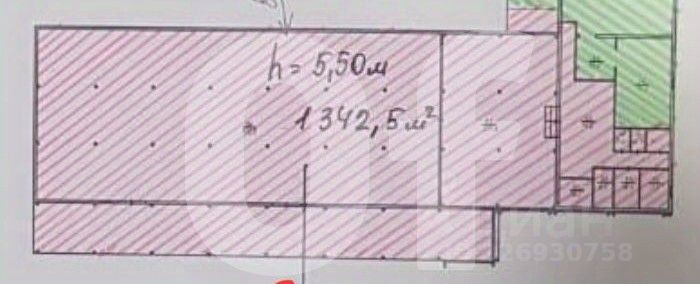 h = 5,50м
1342,5м²
циан
26930758